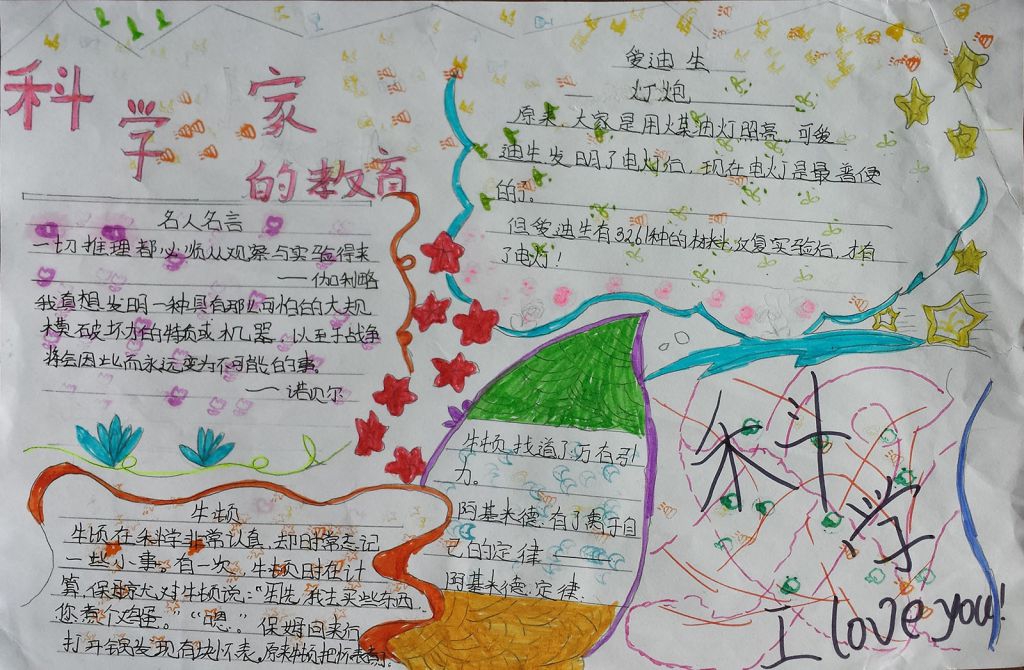 科学家
的教育
名人名言
一切推理都必须从观察与实验得来
——伽利略
我真想发明一种具有那么可怕的大规
模破坏怀的特质或机器，以至于战争
将会因此而永远变为不可能的事
——诺贝尔
爱迪生
灯炮
原来，大家是用煤油灯照亮，可爱
迪生发明了电灯后，现在电灯是最普便
的了。
但爱迪生有3261种的材料反复实验后，才有
了电灯！
牛顿找道了万有引
力。
阿基米德有了离于自
己的定律
阿基米德定律
牛顿
牛顿在科学非常认真，却时常忘记
一些小事。有一次，牛顿时在计
算，保母对牛顿说：“先生，我去买些东西，
你煮个鸡蛋。”“嗯。”保姆回来后
打开锅发现有块怀表，原来牛顿把怀表
科学
I love you!